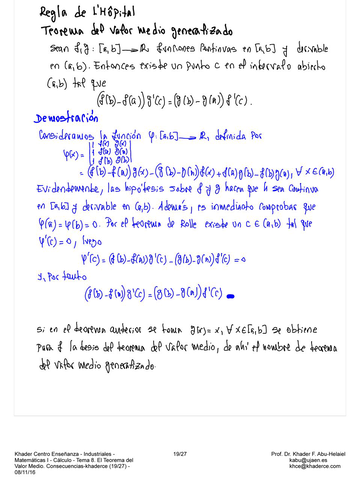 Regla de L'Hôpital
Teorema del Valor Medio generalizado
Sean f,g: [a,b] → ℝ funciones continuas en [a,b] y derivable
en (a,b). Entonces existe un punto c en el intervalo abierto
(a,b) tal que
(f(b)-f(a)) g'(c) = (g(b)-g(a)) f'(c).
Demostración
Consideramos la función φ: [a,b] → ℝ, definida por
φ(x) = |1 f(x) g(x)|
|1 f(a) g(a)|
|1 f(b) g(b)|
= (f(b)-f(a)) g(x) - (g(b)-g(a)) f(x) + f(a)g(b) - f(b)g(a), ∀ x∈(a,b)
Evidentemente, las hipótesis sobre f y g hacen que h sea continua
en [a,b] y derivable en (a,b). Además, es inmediato comprobar que
φ(a) = φ(b) = 0. Por el teorema de Rolle existe un c ∈ (a,b) tal que
φ'(c) = 0, luego
φ'(c) = (f(b)-f(a)) g'(c) - (g(b)-g(a)) f'(c) = 0
y, por tanto
(f(b)-f(a)) g'(c) = (g(b)-g(a)) f'(c)
Si en el teorema anterior se toma g(x) = x, ∀ x∈[a,b] se obtiene
para f la tesis del teorema del valor medio, de ahí el nombre de teorema
del valor medio generalizado.
Khader Centro Enseñanza - Industriales -
Matemáticas I - Cálculo - Tema 8. El Teorema del
Valor Medio. Consecuencias-khaderce (19/27) -
08/11/16
19/27
Prof. Dr. Khader F. Abu-Helaiel
kabu@ujaen.es
khce@khaderce.com